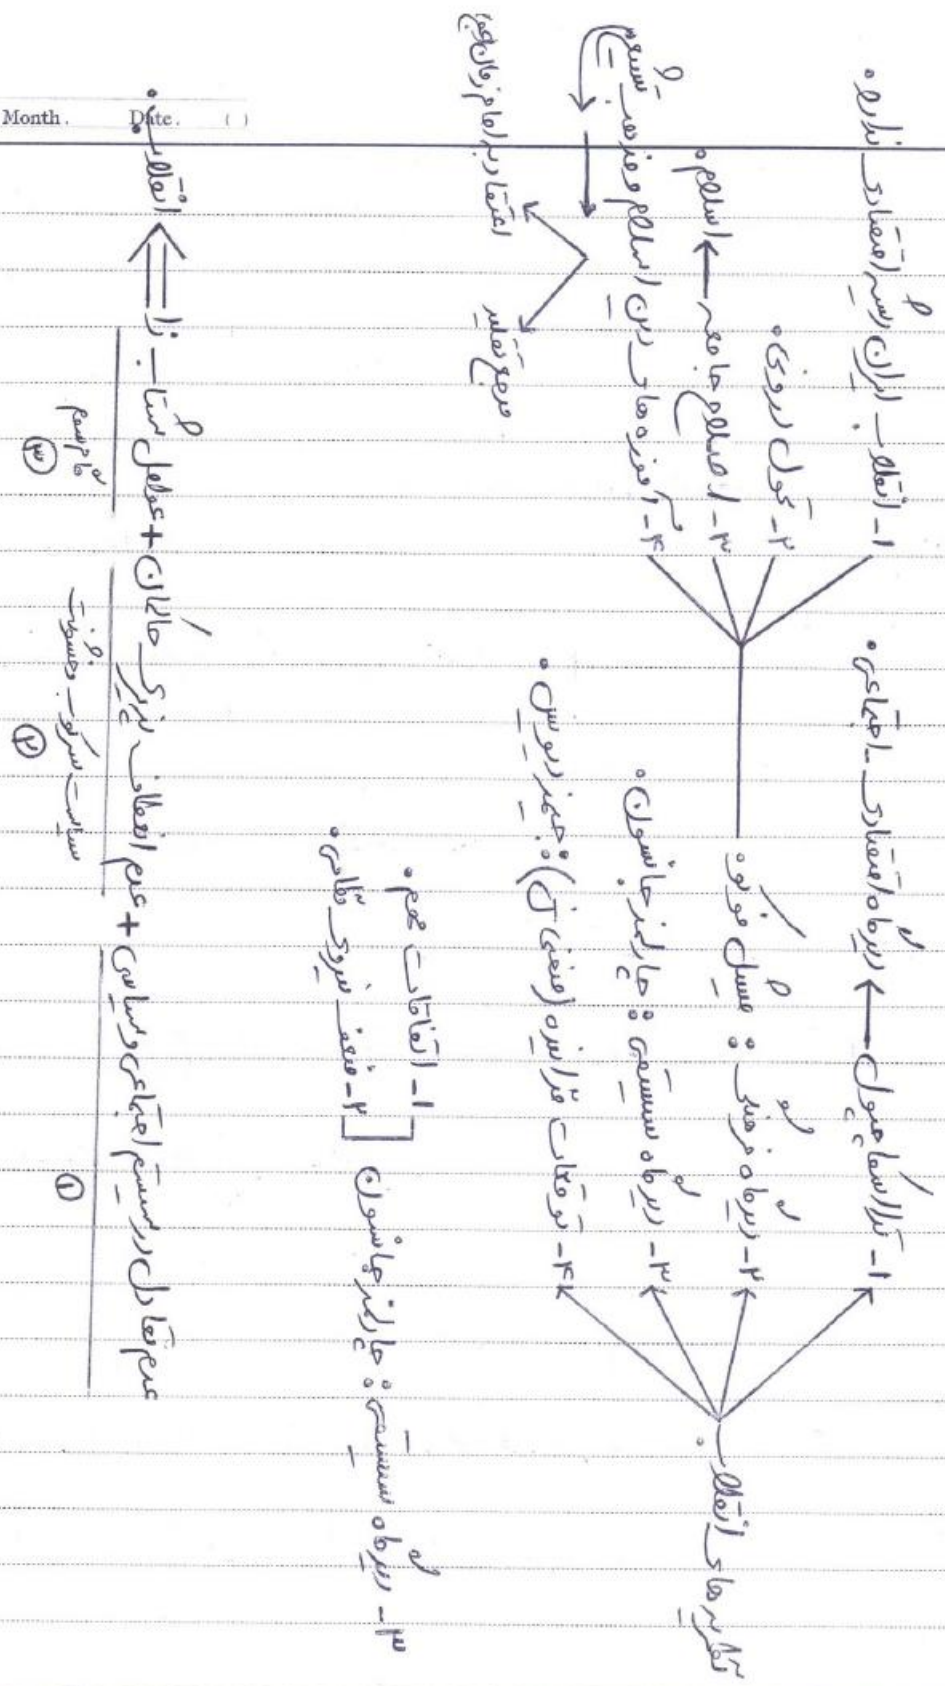 Month. Date. ( )
نظریه‌های انقلاب.
۱- تدااسکاچپول ← دیدگاه اقتصادی - اجتماعی.
۲- دیدگاه فرهنگی : میشل فوکو.
۳- دیدگاه سیستمی : چارلمز جانسون.
۴- توقعات فزاینده (منحنی J) : جیمز دیویس.
۱- انقلاب ایران ریشه اقتصادی ندارد.
۲- تحول درونی.
۳- اصلاح جامعه ← اسلام.
۴- آموزه‌های دین اسلام و مذهب تشیع
اعتقاد به امام زمان (عج)
مرجع تقلید
۳- دیدگاه سیستمی : چارلمز جانسون
۱- اتفاقات مهم.
۲- ضعف نیروی نظامی.
عدم تعادل در سیستم اجتماعی و سیاسی + عدم انعطاف پذیری حاکمان + عوامل شتاب‌زا ⇐ انقلاب.
①
سیاست سرکوب و خشونت
②
③